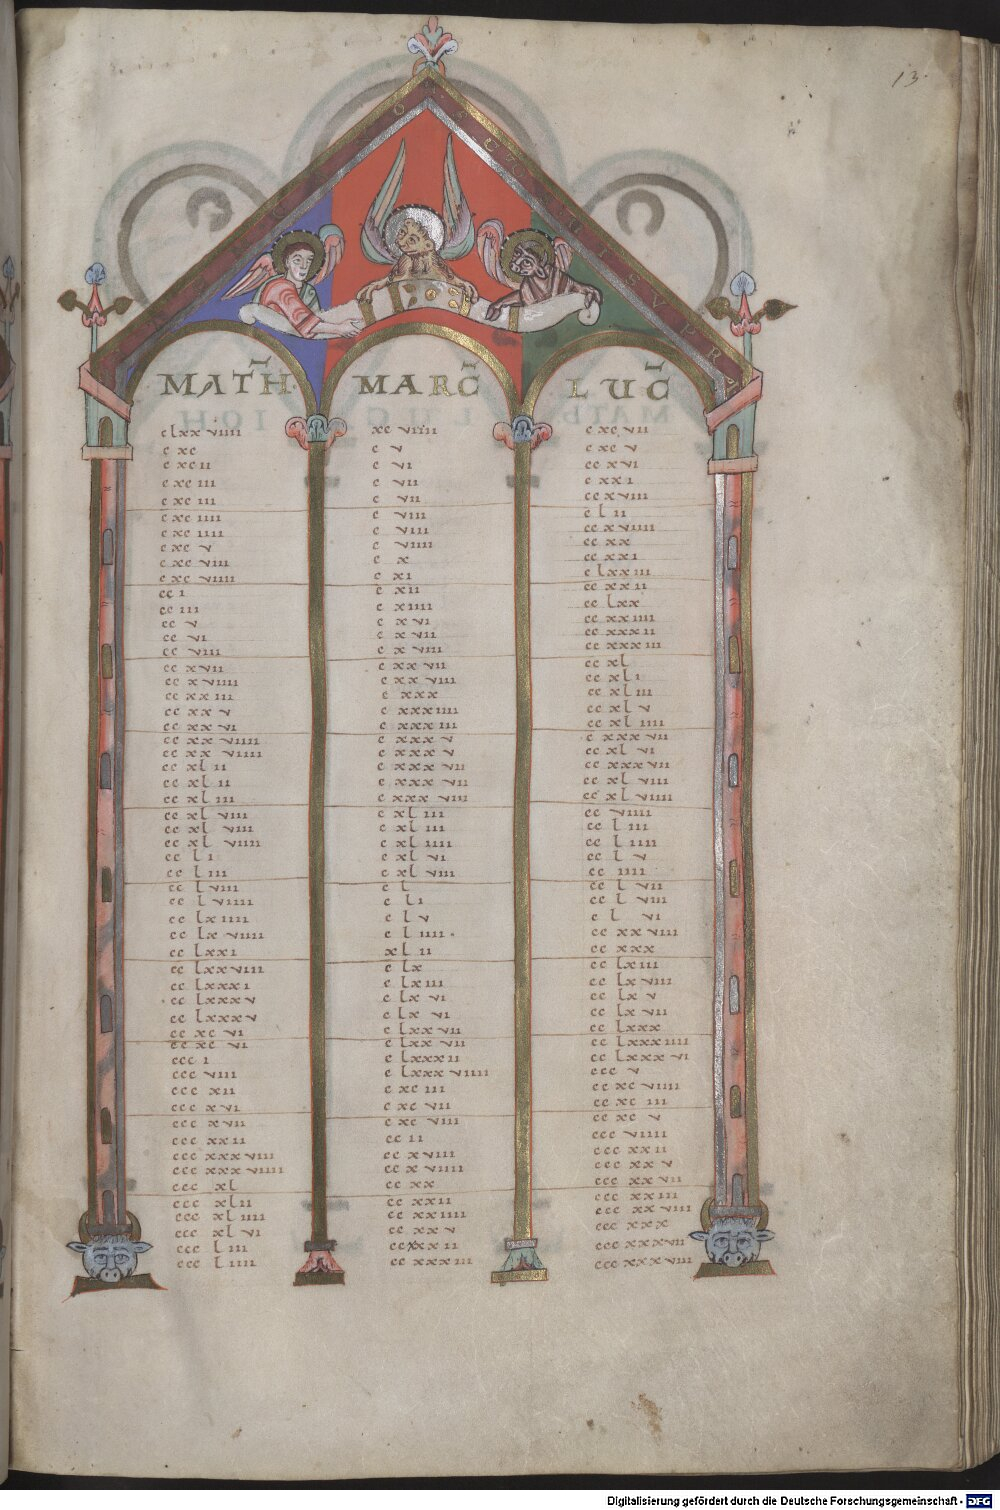 13.
MATH MARC LUC
clxxviiii xcviiii cxcvii
cxc cv cxcv
cxcii cvi ccxvi
cxciii cvii cxxi
cxciii cvii ccxviii
cxciiii cviii clii
cxciiii cviii ccxviiii
cxcv cviiii ccxx
cxcviii cx ccxxi
cxcviiii cxi clxxiii
cci cxii ccxxii
cciii cxiiii cclxx
ccv cxvi ccxxiiii
ccvi cxvii ccxxxii
ccviii cxviii ccxxxiii
ccxvii cxxvii ccxl
ccxviiii cxxviiii ccxli
ccxxiii cxxx ccxliii
ccxxv cxxxiiii ccxlv
ccxxvi cxxxiii ccxliiii
ccxxviiii cxxxv cxxxvii
ccxxviiii cxxxv ccxlvi
ccxlii cxxxvii ccxxxvii
ccxlii cxxxvii ccxlviii
ccxliii cxxxviii ccxlviiii
ccxlviii cxliii ccviiii
ccxlviii cxliii ccliii
ccxlviiii cxliiii ccliiii
ccli cxlvi cclv
ccliii cxlviii cciiii
cclviii cl cclvii
cclviiii cli cclviii
cclxiiii clv clvi
cclxviiii cliiii ccxxviiii
cclxxi xlii ccxxx
cclxxviiii clx cclxiii
cclxxxi clxiii cclxviii
cclxxxv clxvi cclxv
cclxxxv clxvi cclxvii
ccxcvi clxxvii cclxxx
ccxcvi clxxvii cclxxxiiii
ccci clxxxii cclxxxvi
cccviii clxxxviiii cccv
cccxii cxciii ccxcviiii
cccxvi cxcvii ccxciii
cccxvii cxcviii ccxcv
cccxxii ccii cccviiii
cccxxxviii ccxviii cccxxii
cccxxxviiii ccxviiii cccxxv
cccxl ccxx cccxxvii
cccxlii ccxxii cccxxiii
cccxliiii ccxxiiii cccxxviiii
cccxlvi ccxxv cccxxx
cccliii ccxxxii cccxxxvii
cccliiii ccxxxiii cccxxxviii
Digitalisierung gefördert durch die Deutsche Forschungsgemeinschaft - DFG